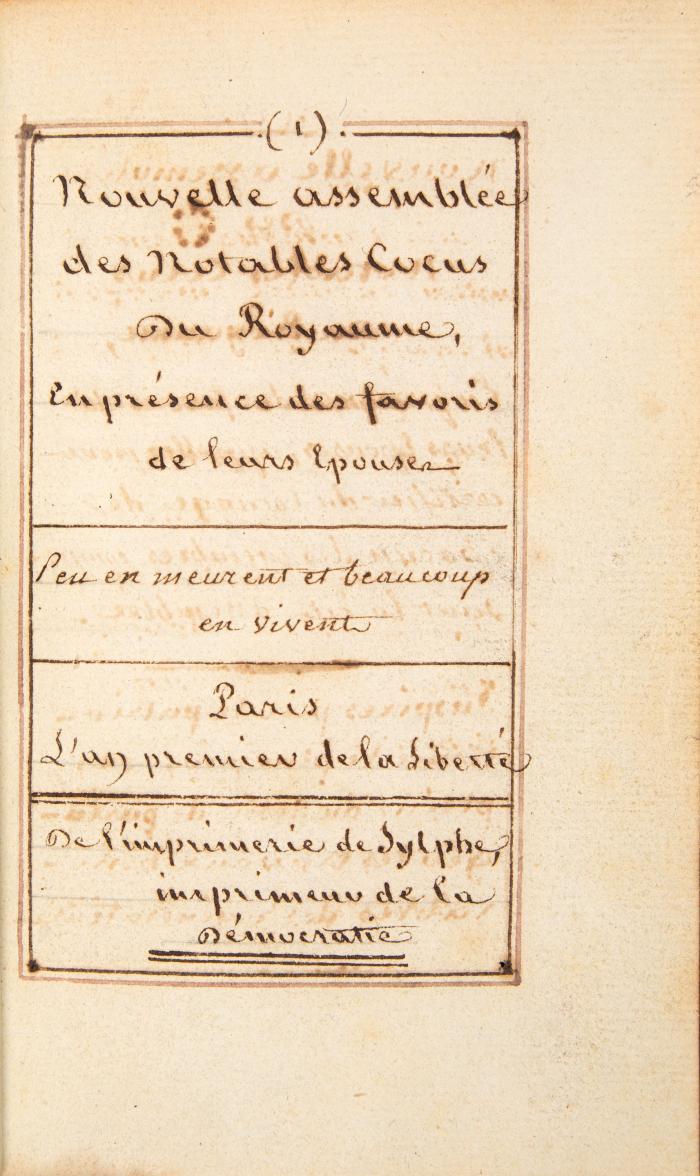 (1)
Nouvelle assemblée
des Notables Cocus
Du Royaume,
En présence des favoris
de leurs Epouses
Peu en meurent et beaucoup
en vivent
Paris
L'an premier de la Liberté
De l'imprimerie de Sylphe,
imprimeur de la
Démocratie